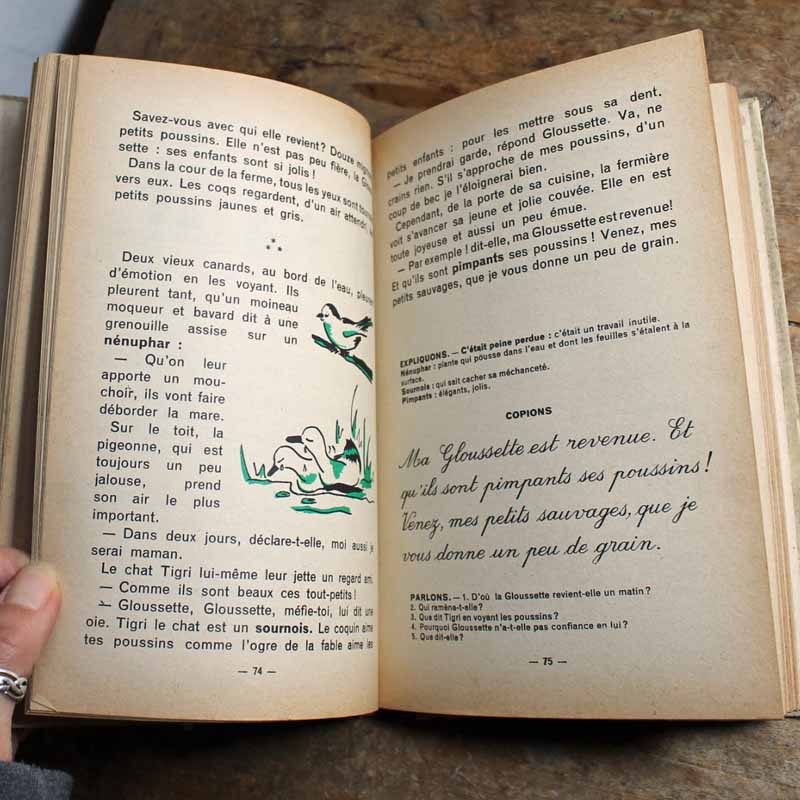 Savez-vous avec qui elle revient? Douze
petits poussins. Elle n'est pas peu fière, la
sette : ses enfants sont si jolis !
Dans la cour de la ferme, tous les yeux sont
vers eux. Les coqs regardent, d'un air attendri,
petits poussins jaunes et gris.
Deux vieux canards, au bord de l'eau,
d'émotion en les voyant. Ils
pleurent tant, qu'un moineau
moqueur et bavard dit à une
grenouille assise sur un
nénuphar :
— Qu'on leur
apporte un mou-
choir, ils vont faire
déborder la mare.
Sur le toit, la
pigeonne, qui est
toujours un peu
jalouse, prend
son air le plus
important.
— Dans deux jours, déclare-t-elle, moi aussi je
serai maman.
Le chat Tigri lui-même leur jette un regard ami.
— Comme ils sont beaux ces tout-petits !
— Gloussette, Gloussette, méfie-toi, lui dit une
oie. Tigri le chat est un sournois. Le coquin aime
tes poussins comme l'ogre de la fable aime les
— 74 —
petits enfants : pour les mettre sous sa dent.
— Je prendrai garde, répond Gloussette. Va, ne
crains rien. S'il s'approche de mes poussins, d'un
coup de bec je l'éloignerai bien.
Cependant, de la porte de sa cuisine, la fermière
voit s'avancer sa jeune et jolie couvée. Elle en est
toute joyeuse et aussi un peu émue.
— Par exemple ! dit-elle, ma Gloussette est revenue!
Et qu'ils sont pimpants ses poussins ! Venez, mes
petits sauvages, que je vous donne un peu de grain.
EXPLIQUONS. — C'était peine perdue : c'était un travail inutile.
Nénuphar : plante qui pousse dans l'eau et dont les feuilles s'étalent à la
surface.
Sournois : qui sait cacher sa méchanceté.
Pimpants : élégants, jolis.
COPIONS
Ma Gloussette est revenue. Et
qu'ils sont pimpants ses poussins !
Venez, mes petits sauvages, que je
vous donne un peu de grain.
PARLONS. — 1. D'où la Gloussette revient-elle un matin ?
2. Qui ramène-t-elle ?
3. Que dit Tigri en voyant les poussins ?
4. Pourquoi Gloussette n'a-t-elle pas confiance en lui ?
5. Que dit-elle ?
— 75 —